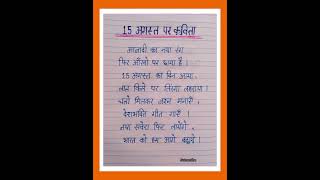 15 अगस्त पर कविता
आजादी का नया रंग
फिर आँखों पर छाया है ।
15 अगस्त का दिन आया,
लाल किले पर तिरंगा लहराया ।
चलो मिलकर जश्न मनाएँ,
देशभक्ति गीत गाएँ ।
नया सवेरा फिर लायेंगे,
भारत को हम आगे बढ़ायेंगे ।